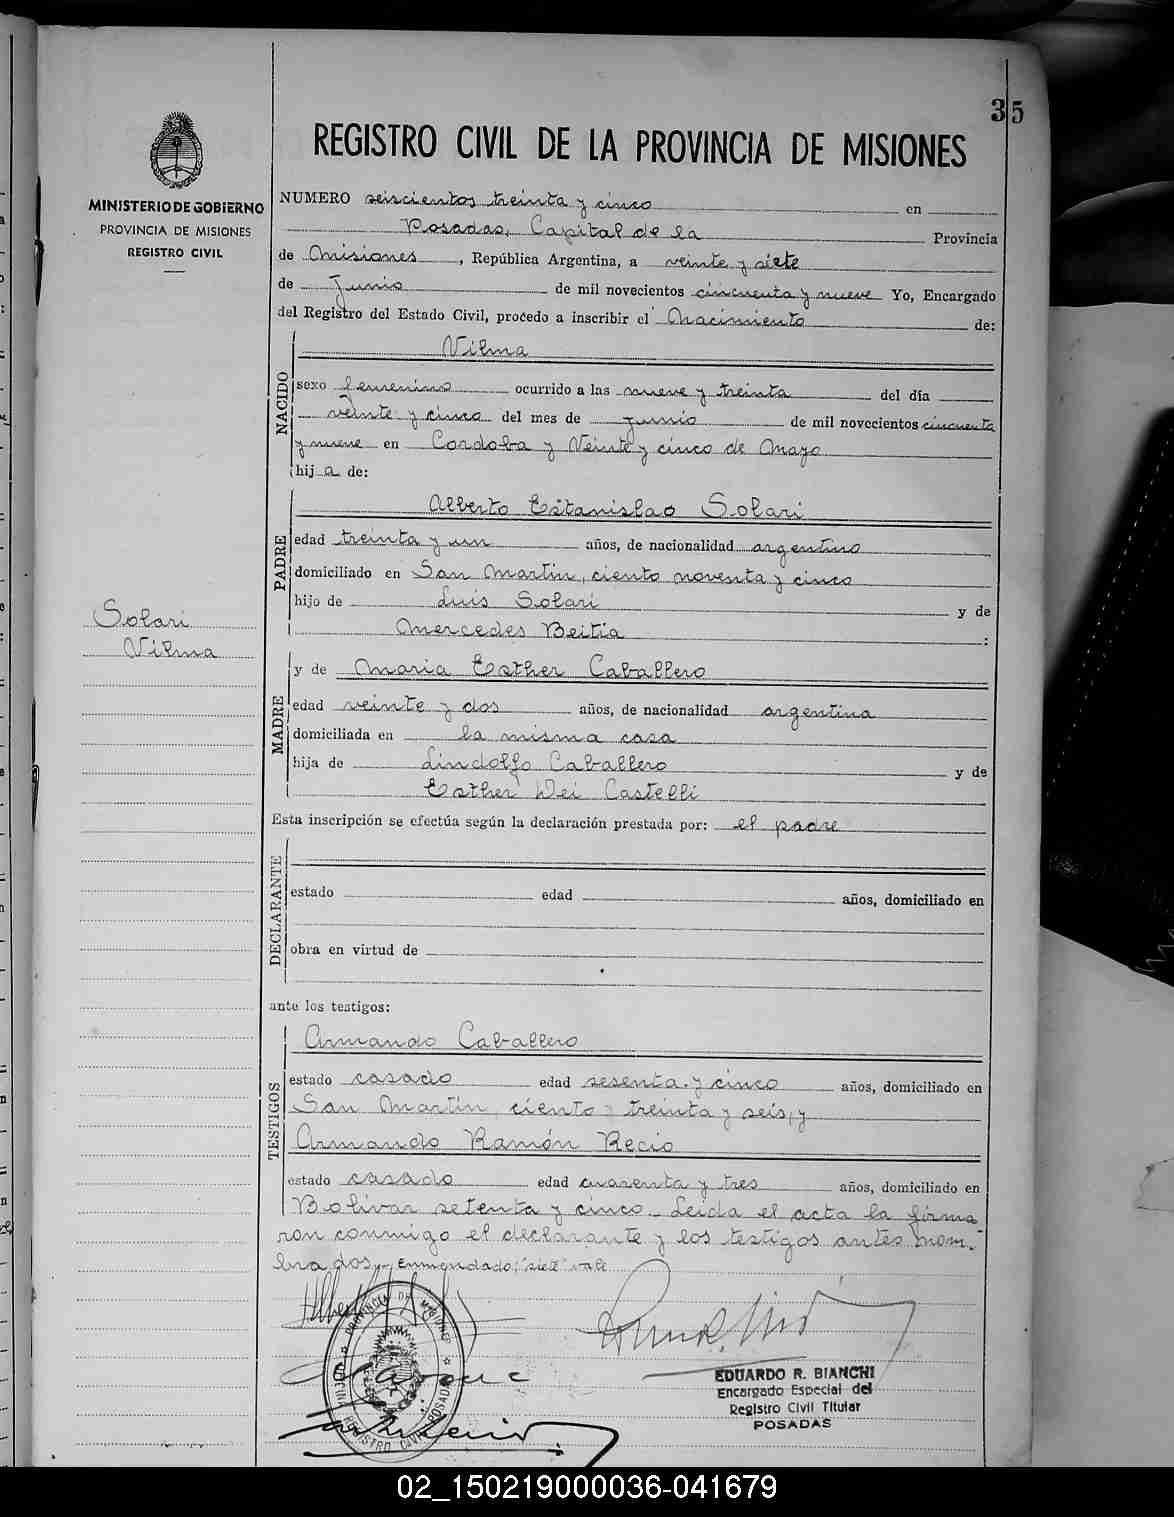 35
REGISTRO CIVIL DE LA PROVINCIA DE MISIONES
MINISTERIO DE GOBIERNO
PROVINCIA DE MISIONES
REGISTRO CIVIL
NUMERO seiscientos treinta y cinco en
Posadas, Capital de la Provincia
de Misiones, República Argentina, a veinte y siete
de Junio de mil novecientos cincuenta y nueve Yo, Encargado
del Registro del Estado Civil, procedo a inscribir el Nacimiento de:
NACIDO
Vilma
sexo femenino ocurrido a las nueve y treinta del día
veinte y cinco del mes de junio de mil novecientos cincuenta
y nueve en Cordoba y Veinte y cinco de Mayo
hija de:
PADRE
Alberto Estanislao Solari
edad treinta y un años, de nacionalidad argentino
domiciliado en San Martin, ciento noventa y cinco
hijo de Luis Solari y de
Mercedes Beitia :
Solari
Vilma
MADRE
y de Maria Esther Caballero
edad veinte y dos años, de nacionalidad argentina
domiciliada en la misma casa
hija de Lindolfo Caballero y de
Esther Dei Castelli
Esta inscripción se efectúa según la declaración prestada por: el padre
DECLARANTE
estado edad años, domiciliado en
obra en virtud de
ante los testigos:
TESTIGOS
Armando Caballero
estado casado edad sesenta y cinco años, domiciliado en
San Martin, ciento treinta y seis, y
Armando Ramón Recio
estado casado edad cuarenta y tres años, domiciliado en
Bolivar setenta y cinco. Leida el acta la firma
ron conmigo el declarante y los testigos antes nom-
brados. Enmendado: "siete" vale
PROVINCIA DE MISIONES
REGISTRO CIVIL POSADAS
EDUARDO R. BIANCHI
Encargado Especial del
Registro Civil Titular
POSADAS
02_150219000036-041679